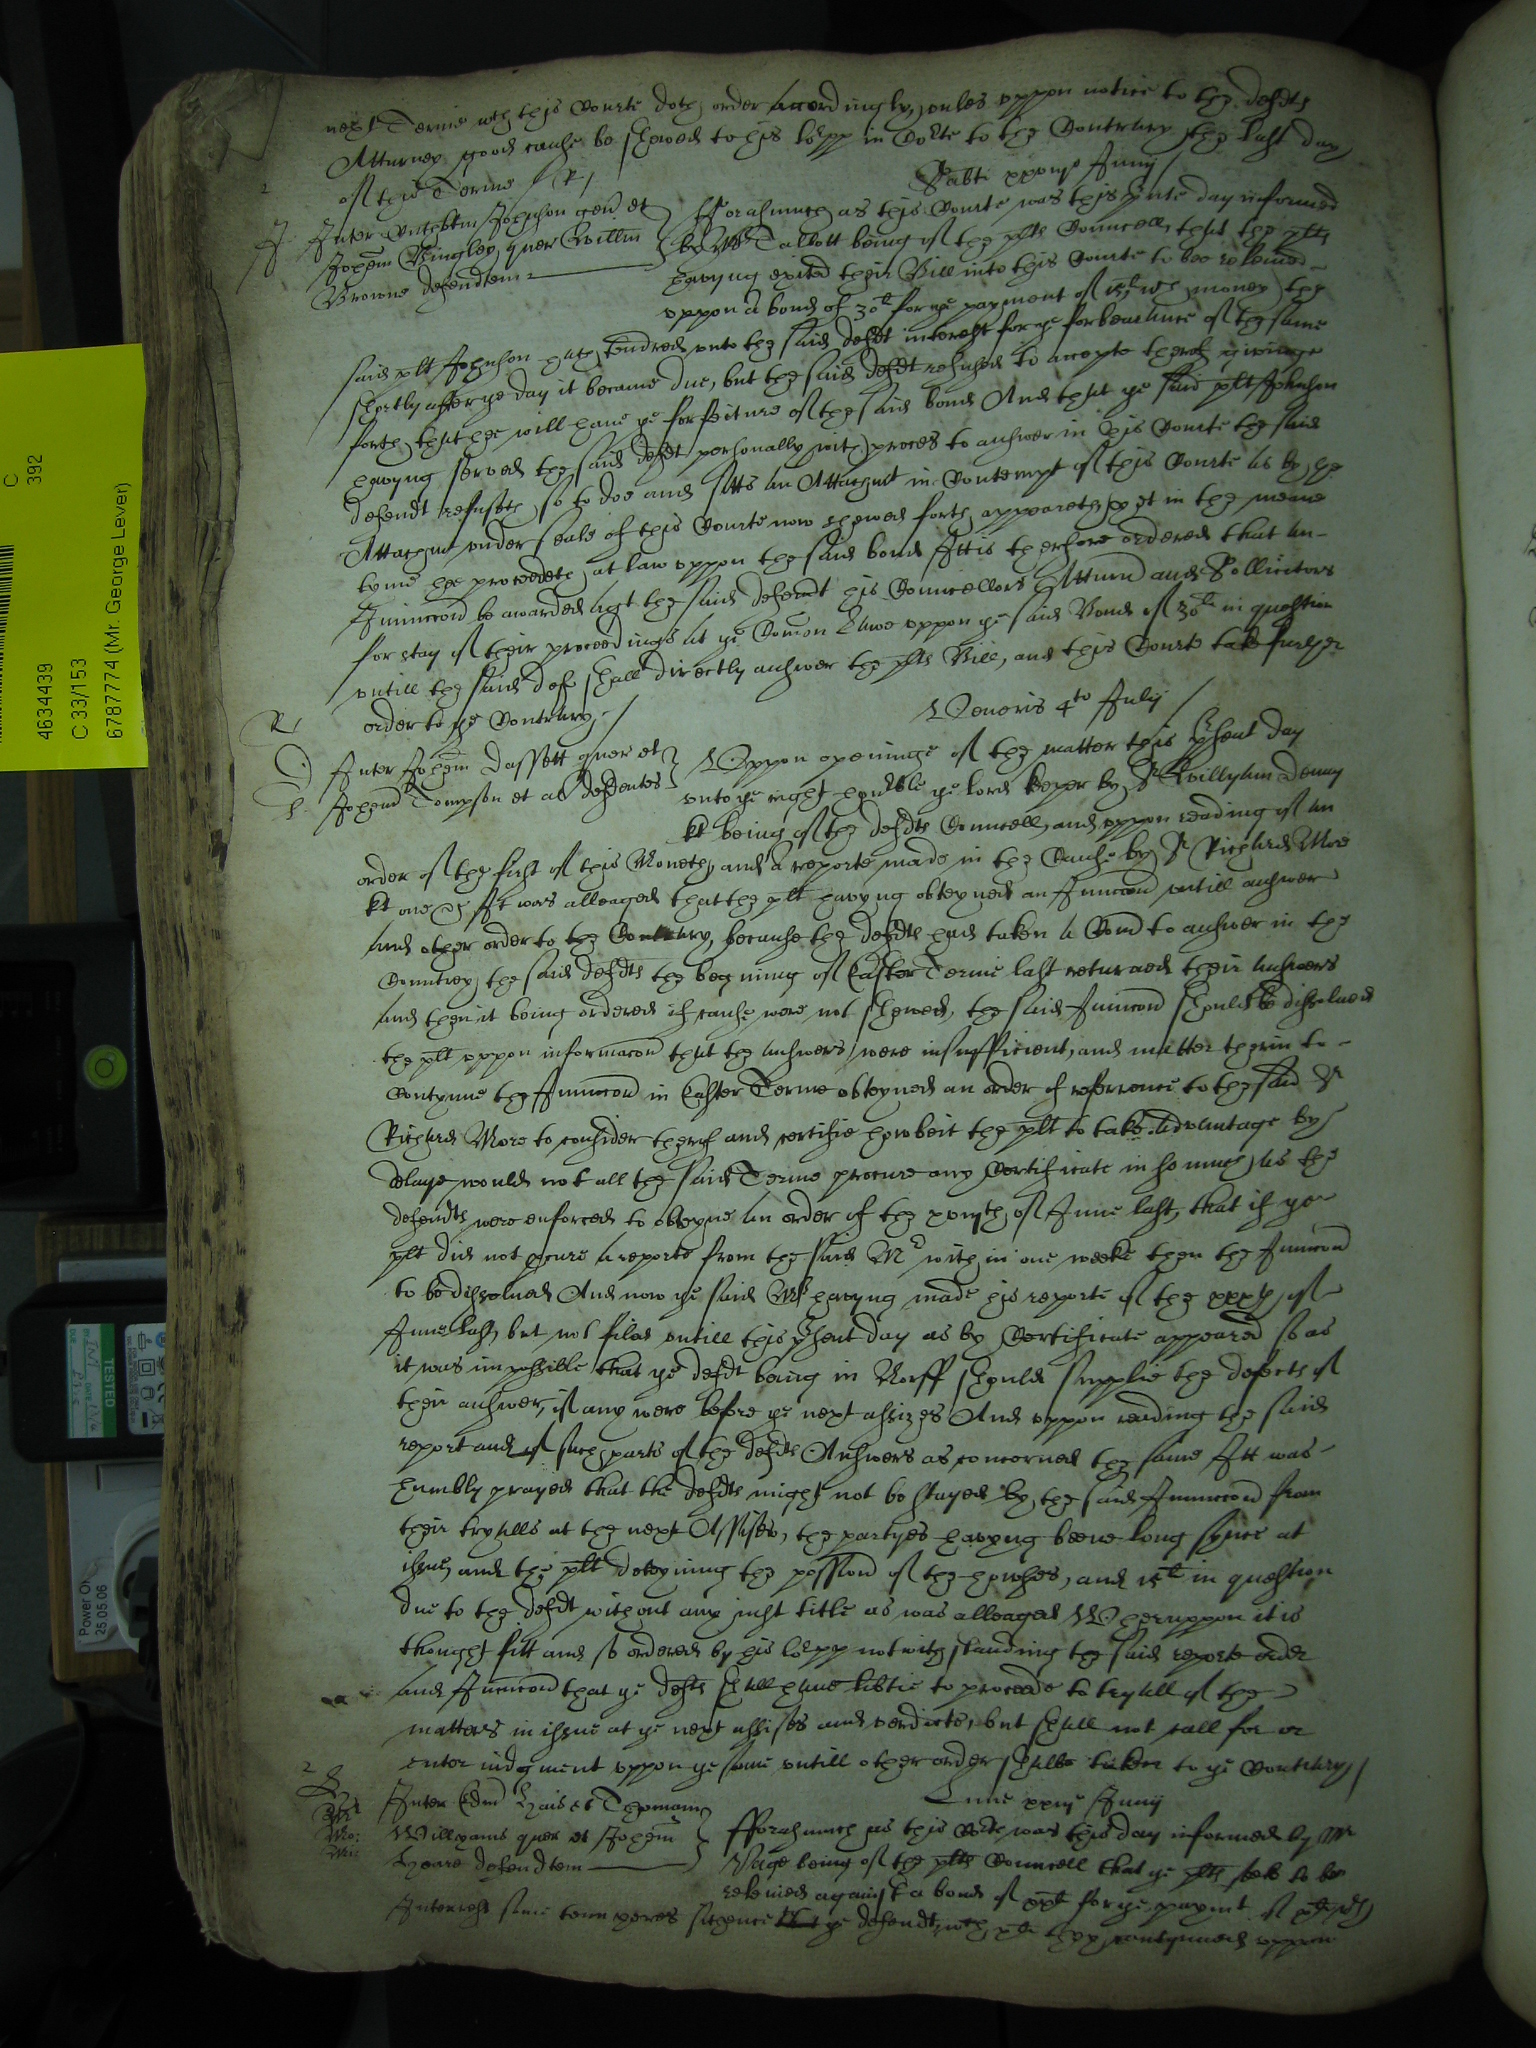 next Terme wch this Courte doth order accordingly, unles uppon notice to the defdts
Atturney good cause be shewed to his lopp in Courte to the Contrary the last day
of this Terme / (R) /
Sabti xxviijo Junij /
Inter Johnson gen et
Johem Bingley quer Willm
Browne defendtem
Fforasmuch as this Courte was this pnte day informed
by Mr Talbott being of the plts Councell, that the plts
havyng exited their Bill into this Courte to bee releived
uppon a bond of 30li for ye payment of 15li wch money the
said plt Johnson hath tendred unto the said defdt interest for ye forbearance of the same
shortly after ye day it became due, but the said defdt refused to accepte therof givinge
forth that hee will have ye forfeiture of the said bond And that ye said plt Johnson
havyng served the said defdt personally with proces to answer in this Courte the said
defendt refuseth so to doe and sitts an Attachmt in Contempt of this Courte as by the
Attachmt under seale of this Courte now shewed forth appeareth, yet in the meane
tyme hee proceedeth at law uppon the said bond Itt is therfore ordered that an
Iniunccon be awarded agt the said defendt his Councellors Atturn and Sollicitors
for stay of their proceedings at ye Comon Lawe uppon ye said Bond of 30li in question
untill the said def shall directly answer the plts Bill, and this Courte take further
order to the Contrary. /
R
Veneris 4to Julij /
Inter Johem Dassett quer et
Johem Tompson et al defdentes
Uppon openinge of the matter this psent day
unto ye right honble ye lord keeper by Sr Willyam Denny
kt being of the defdts Councell, and uppon reading of an
order of the first of this Moneth, and a reporte made in the Cause by Sr Richard More
kt one &c It was alleaged that the plt havyng obteyned an Iniunccon untill answer
and other order to the Contrary, because the defdts had taken a Comd to answer in the
Countrey the said defdts the begyning of Easter Terme last returned their answers
and then it being ordered if cause were not shewed, the said Iniunccon should be dissolved
the plt uppon informacon that the answers were insufficient, and matter therin to
Contynue the Iniunccon in Easter Terme obteyned an order of reference to the said Sr
Richard More to consider therof and certifie howbeit the plt to take advantage by
delaye would not all the said Terme procure any Certificate in so much as the
defendts were enforced to obteyne an order of the of June last, that if ye
plt did not pcure a reporte from the said Mr with in one weeke then the Iniunccon
to be dissolved And now ye said Mr havyng made his reporte of the xxxth of
June last, but not filed untill this psent day as by Certificate appeared so as
it was impossible that ye defdt being in Norff should supplie the defects of
their answer, if any were before ye next assizes And uppon reading the said
report and of such parts of the defdts Answers as concerned the same Itt was
humbly prayed that the defdts might not be stayed by the said Iniunccon from
their tryalls at the next Assises, the partyes havyng beene long synce at
issue, and the plt deteyning the possion of the howses, and 15li in question
due to the defdt without any just title as was alleaged Wheruppon it is
thought fitt and so ordered by his lopp notwithstanding the said reporte order
and Iniunccon that ye defts shall have libtie to proceede to tryall of the
matters in issue at ye next assises and verdicte, but shall not call for or
enter iudgment uppon ye same untill other order shalbe taken to ye Contrary /
Lune xxiijo Junij
Inter Edm et Thomam
Willyams quer et Johem
Hoare defendtem
Fforasmuch as this Cote was this day informed by Mr
Page being of the plts Councell that ye plts seek to be
releived against a bond of xxli for ye paymt of xli wth
Interest some tenn yeres sithence ye defendt, wch xli they contynued uppon
C
392
4634439
C 33/153
6787774 (Mr. George Lever)
TESTED
Power On
25.05.06